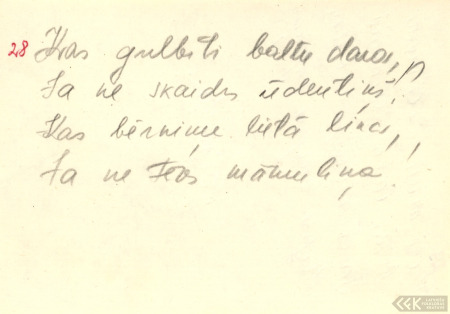 28 Kas gulbīti baltu dara,
Ja ne skaidrs ūdentiņš?
Kas bērniņu lielā lica,
Ja ne tēvs māmuliņa.